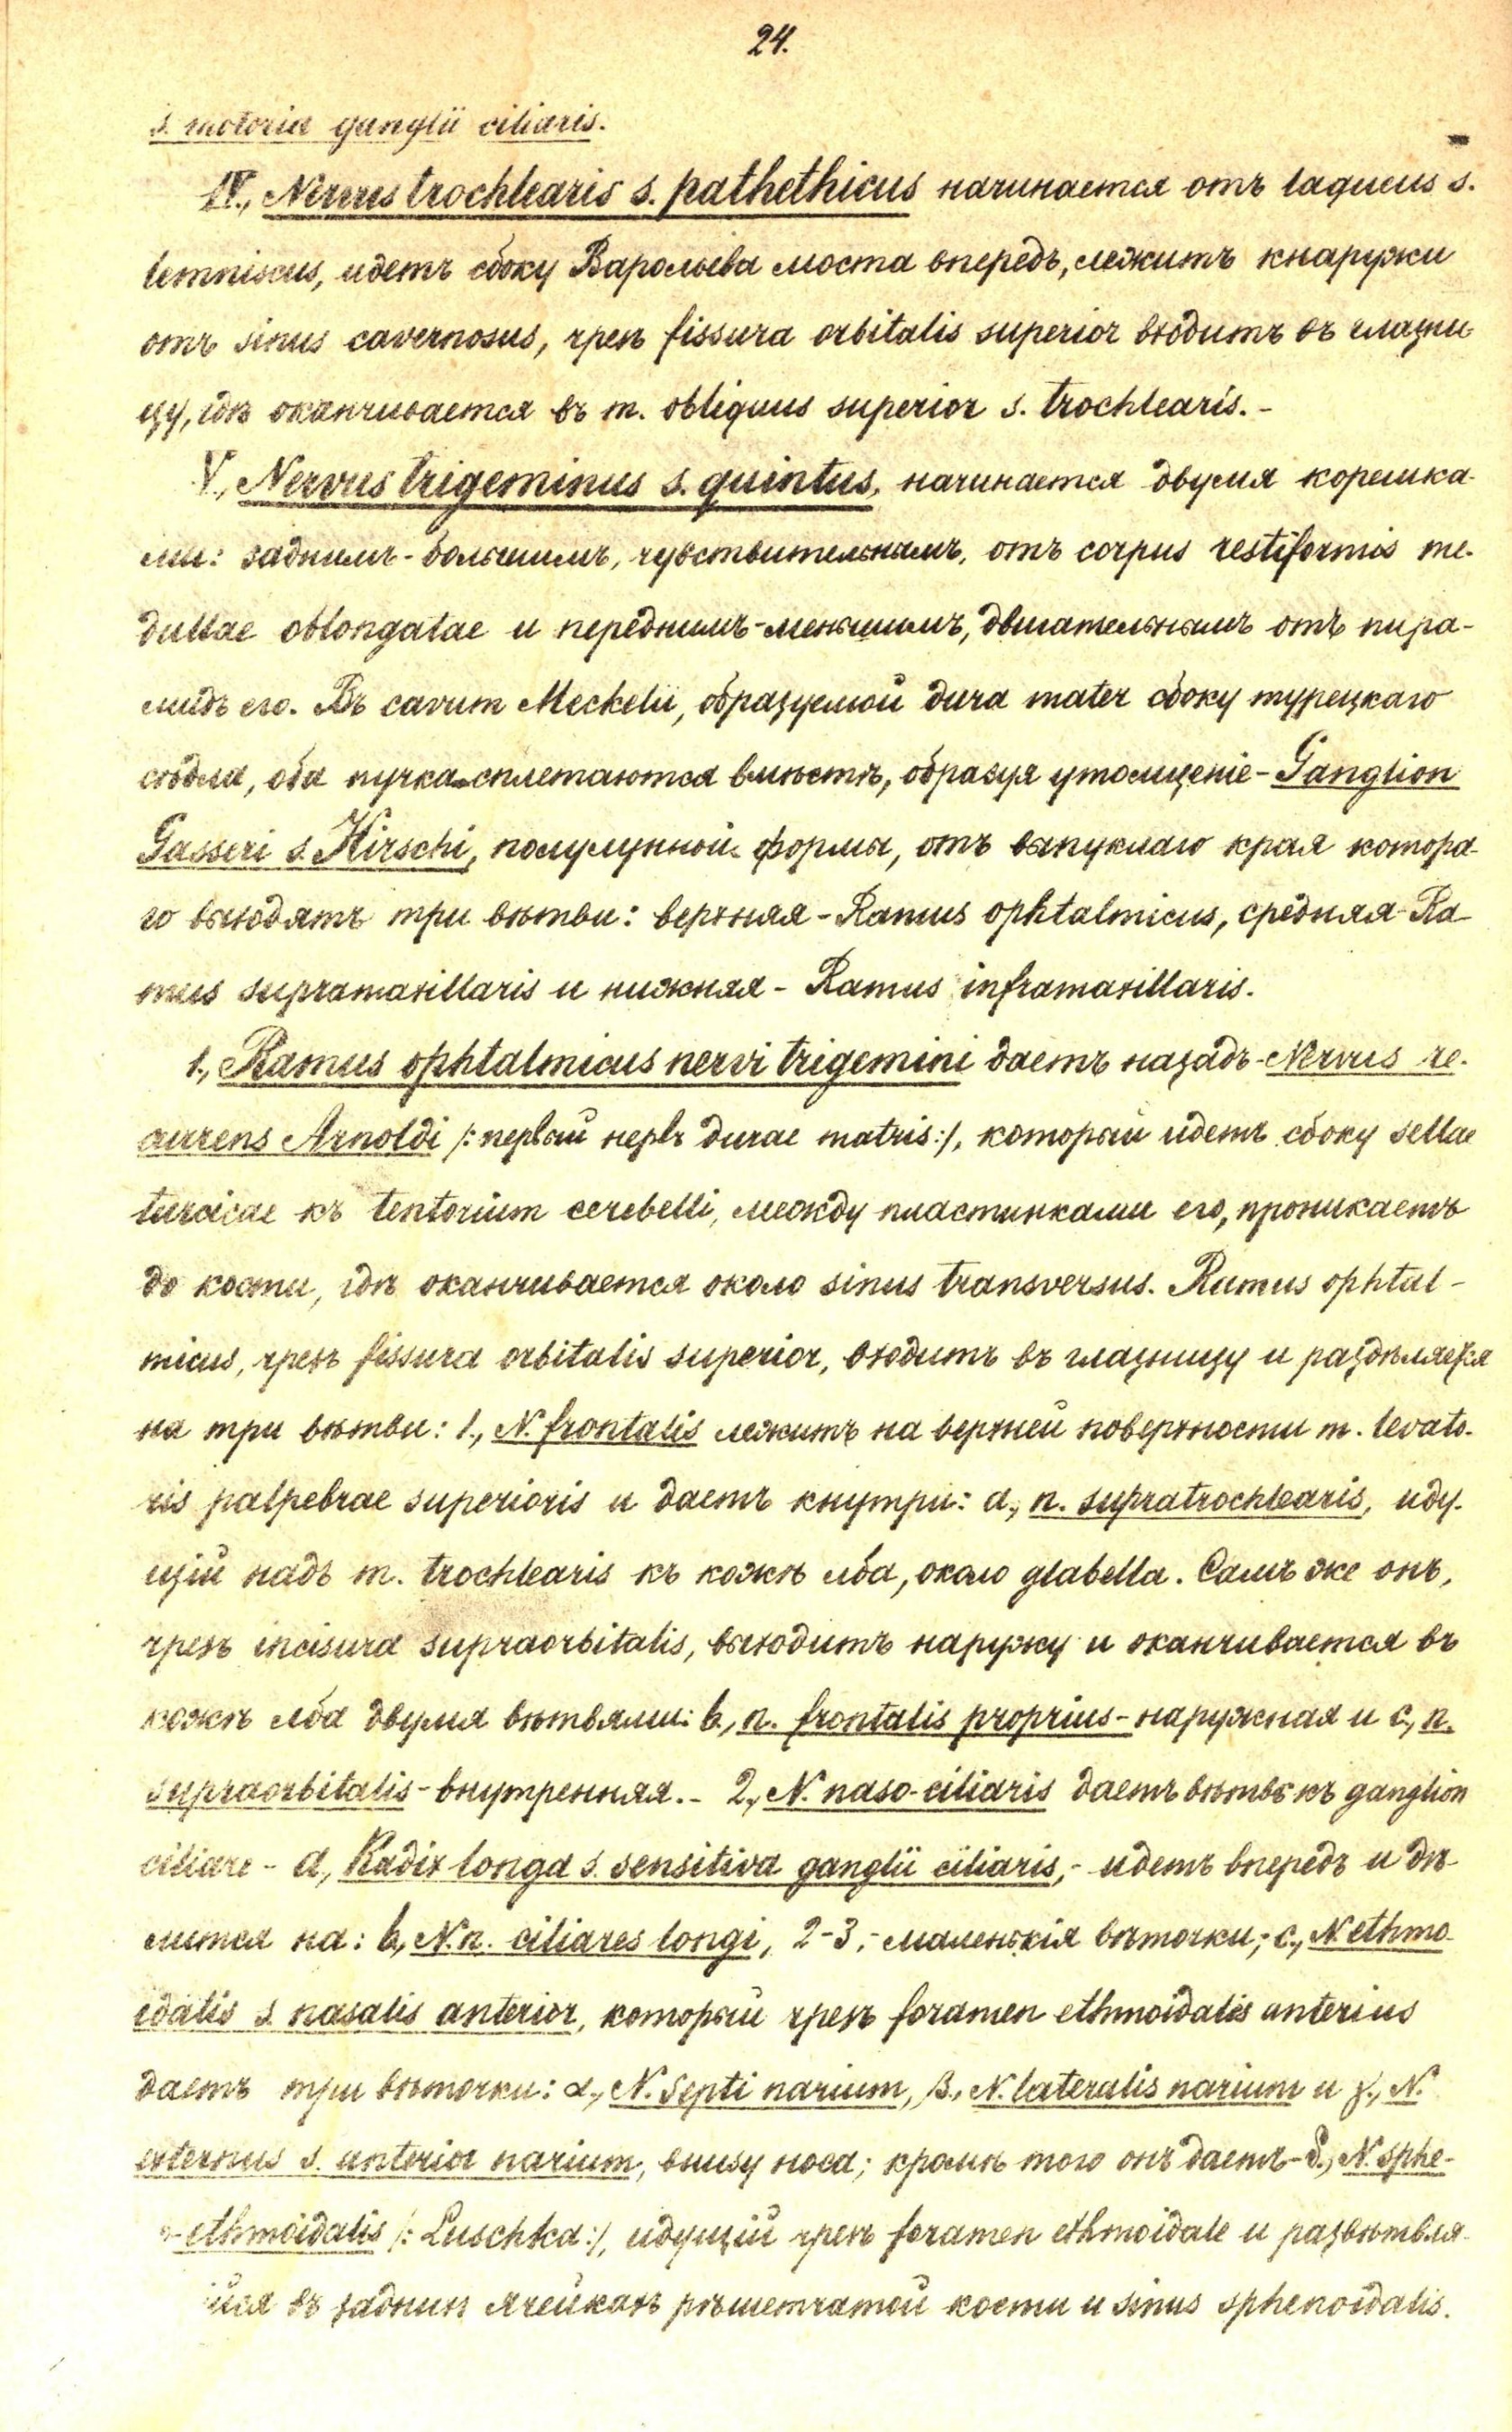 24.
s. motoria ganglii ciliaris.
IV., Nervus trochlearis s. pathethicus начинается отъ laqueus s.
lemniscus, идетъ сбоку Варольева моста впередъ, лежитъ кнаружи
отъ sinus cavernosus, чрезъ fissura orbitalis superior входитъ въ глазни-
цу, гдѣ оканчивается въ m. obliquus superior s. trochlearis. -
V., Nervus trigeminus s. quintus, начинается двумя корешка-
ми: заднимъ - большимъ, чувствительнымъ, отъ corpus restiformis me-
dullae oblongatae и переднимъ - меньшимъ, двигательнымъ отъ пира-
мидъ его. Въ cavum Meckelii, образуемой dura mater сбоку турецкаго
сѣдла, оба пучка сплетаются вмѣстѣ, образуя утолщеніе - Ganglion
Gasseri s. Hirschi, полулунной формы, отъ выпуклаго края котора-
го выходятъ три вѣтви: верхняя - Ramus ophtalmicus, средняя - Ra-
mus supramaxillaris и нижняя - Ramus inframaxillaris.
1., Ramus ophtalmicus nervi trigemini даетъ назадъ - Nervus re-
currens Arnoldi /: первый нервъ durae matris :/, который идетъ сбоку sellae
turcicae къ tentorium cerebelli, между пластинками его, проникаетъ
до кости, гдѣ оканчивается около sinus transversus. Ramus ophtal-
micus, чрезъ fissura orbitalis superior, входитъ въ глазницу и раздѣляется
на три вѣтви: 1., N. frontalis лежитъ на верхней поверхности m. levato-
ris palpebrae superioris и даетъ кнутри: a., n. supratrochlearis, иду-
щій надъ m. trochlearis къ кожѣ лба, около glabella. Самъ же онъ,
чрезъ incisura supraorbitalis, выходитъ наружу и оканчивается въ
кожѣ лба двумя вѣтвями: b., n. frontalis proprius - наружная и c., n.
supraorbitalis - внутренняя. - 2., N. naso-ciliaris даетъ вѣтвь къ ganglion
ciliare - a., Radix longa s. sensitiva ganglii ciliaris, - идетъ впередъ и дѣ-
лится на: b., N.n. ciliares longi, 2-3, - маленькія вѣточки; - c., N. ethmo-
idalis s. nasalis anterior, который чрезъ foramen ethmoidalis anterius
даетъ три вѣточки: α., N. septi narium, β., N. lateralis narium и γ., N.
externus s. anterior narium, внизу носа; кромѣ того онъ даетъ - δ., N. sphe-
o-ethmoidalis /: Luschka :/, идущій чрезъ foramen ethmoidale и развѣтвля-
ійся въ заднихъ ячейкахъ рѣшетчатой кости и sinus sphenoidalis.